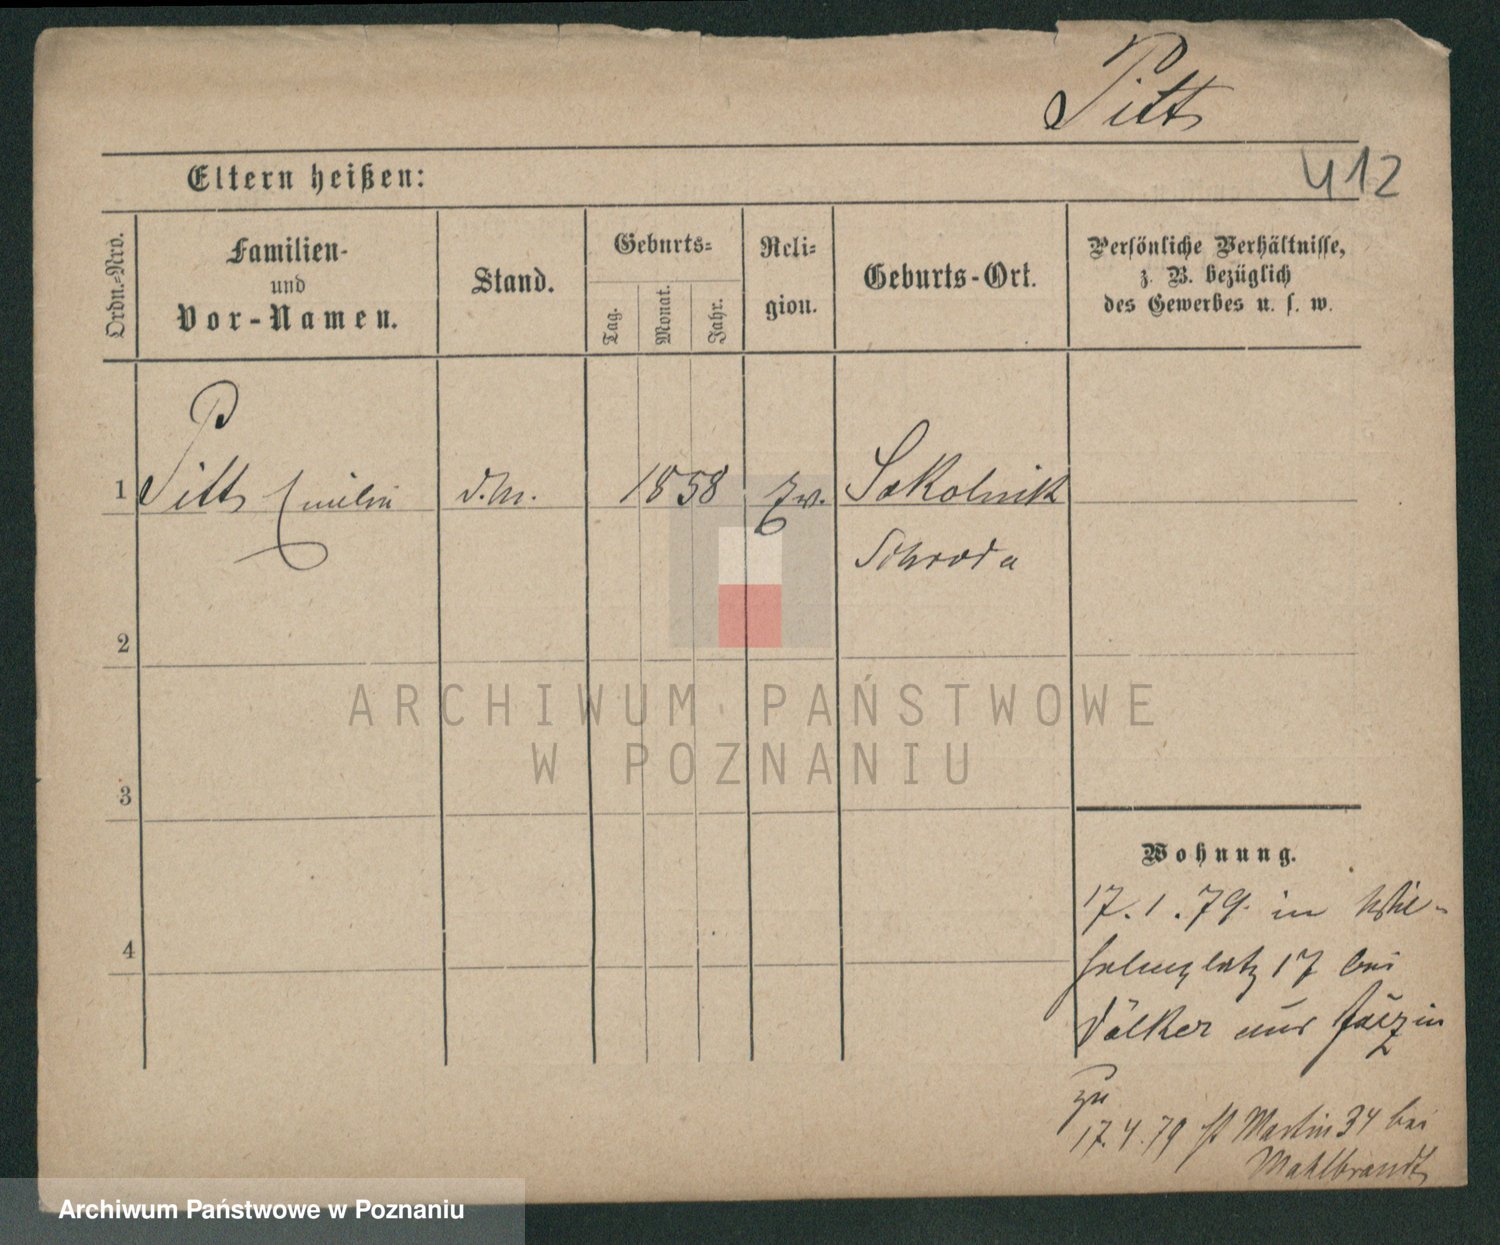 Pitt
412
Eltern heißen:
Ordn.=Nro.
Familien-
und
Vor-Namen.
Stand.
Geburts=
Tag.
Monat.
Jahr.
Reli=
gion.
Geburts-Ort.
Persönliche Verhältnisse,
z. B. bezüglich
des Gewerbes u. s. w.
1 Pitt Emilie d. M. 1858 Ev. Sokolnik
Schroda
2
3
4
Wohnung.
17.1.79. in Wil-
helmplatz 17 bei
Völker aus
zu
17.4.79 St Martin 34 bei
Mahlbrandt
ARCHIWUM PAŃSTWOWE
W POZNANIU
Archiwum Państwowe w Poznaniu